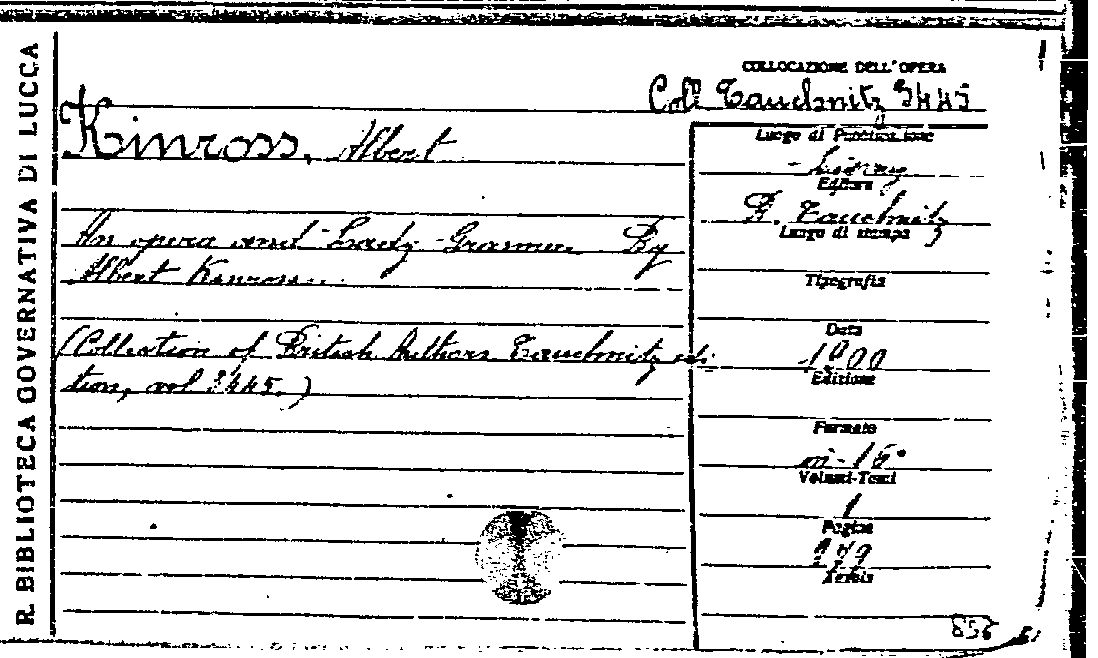 R. BIBLIOTECA GOVERNATIVA DI LUCCA
COLLOCAZIONE DELL'OPERA
Coll. Tauchnitz 3445
Kinross, Albert
An opera and Lady Grasmere. By
Albert Kinross.
(Collection of British Authors Tauchnitz edi-
tion, vol 3445.)
Luogo di Pubblicazione
Editore
B. Tauchnitz
Luogo di stampa
Tipografia
Data
1900
Edizione
Formato
in-16°
Volumi-Tomi
1
Pagine